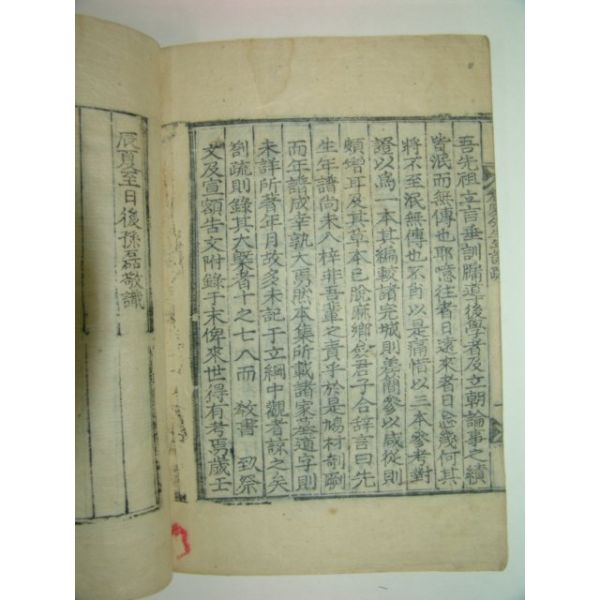 吾先祖立言垂訓牖導後學者及立朝論事之蹟
皆泯而無傳也耶噫往者日遠來者日忘幾何其
將不至泯無傳也不肖以是痛惜以三本參考對
證以爲一本其編較諸完城則差簡參以咸從則
頗詳耳及其草本已脫麻鄕衮君子合辞言曰先
生年譜尙未入梓非吾輩之責乎於是鳩材剞劂
而年譜成幸孰大焉然本集所載諸家墓道字則
未詳所著年月故多未記于立綱中觀者諒之矣
箚疏則錄其大槩者十之七八而 敎書 致祭
文及宣額告文附錄于末俾來世得有考焉歲壬
辰夏至日後孫磊敬識